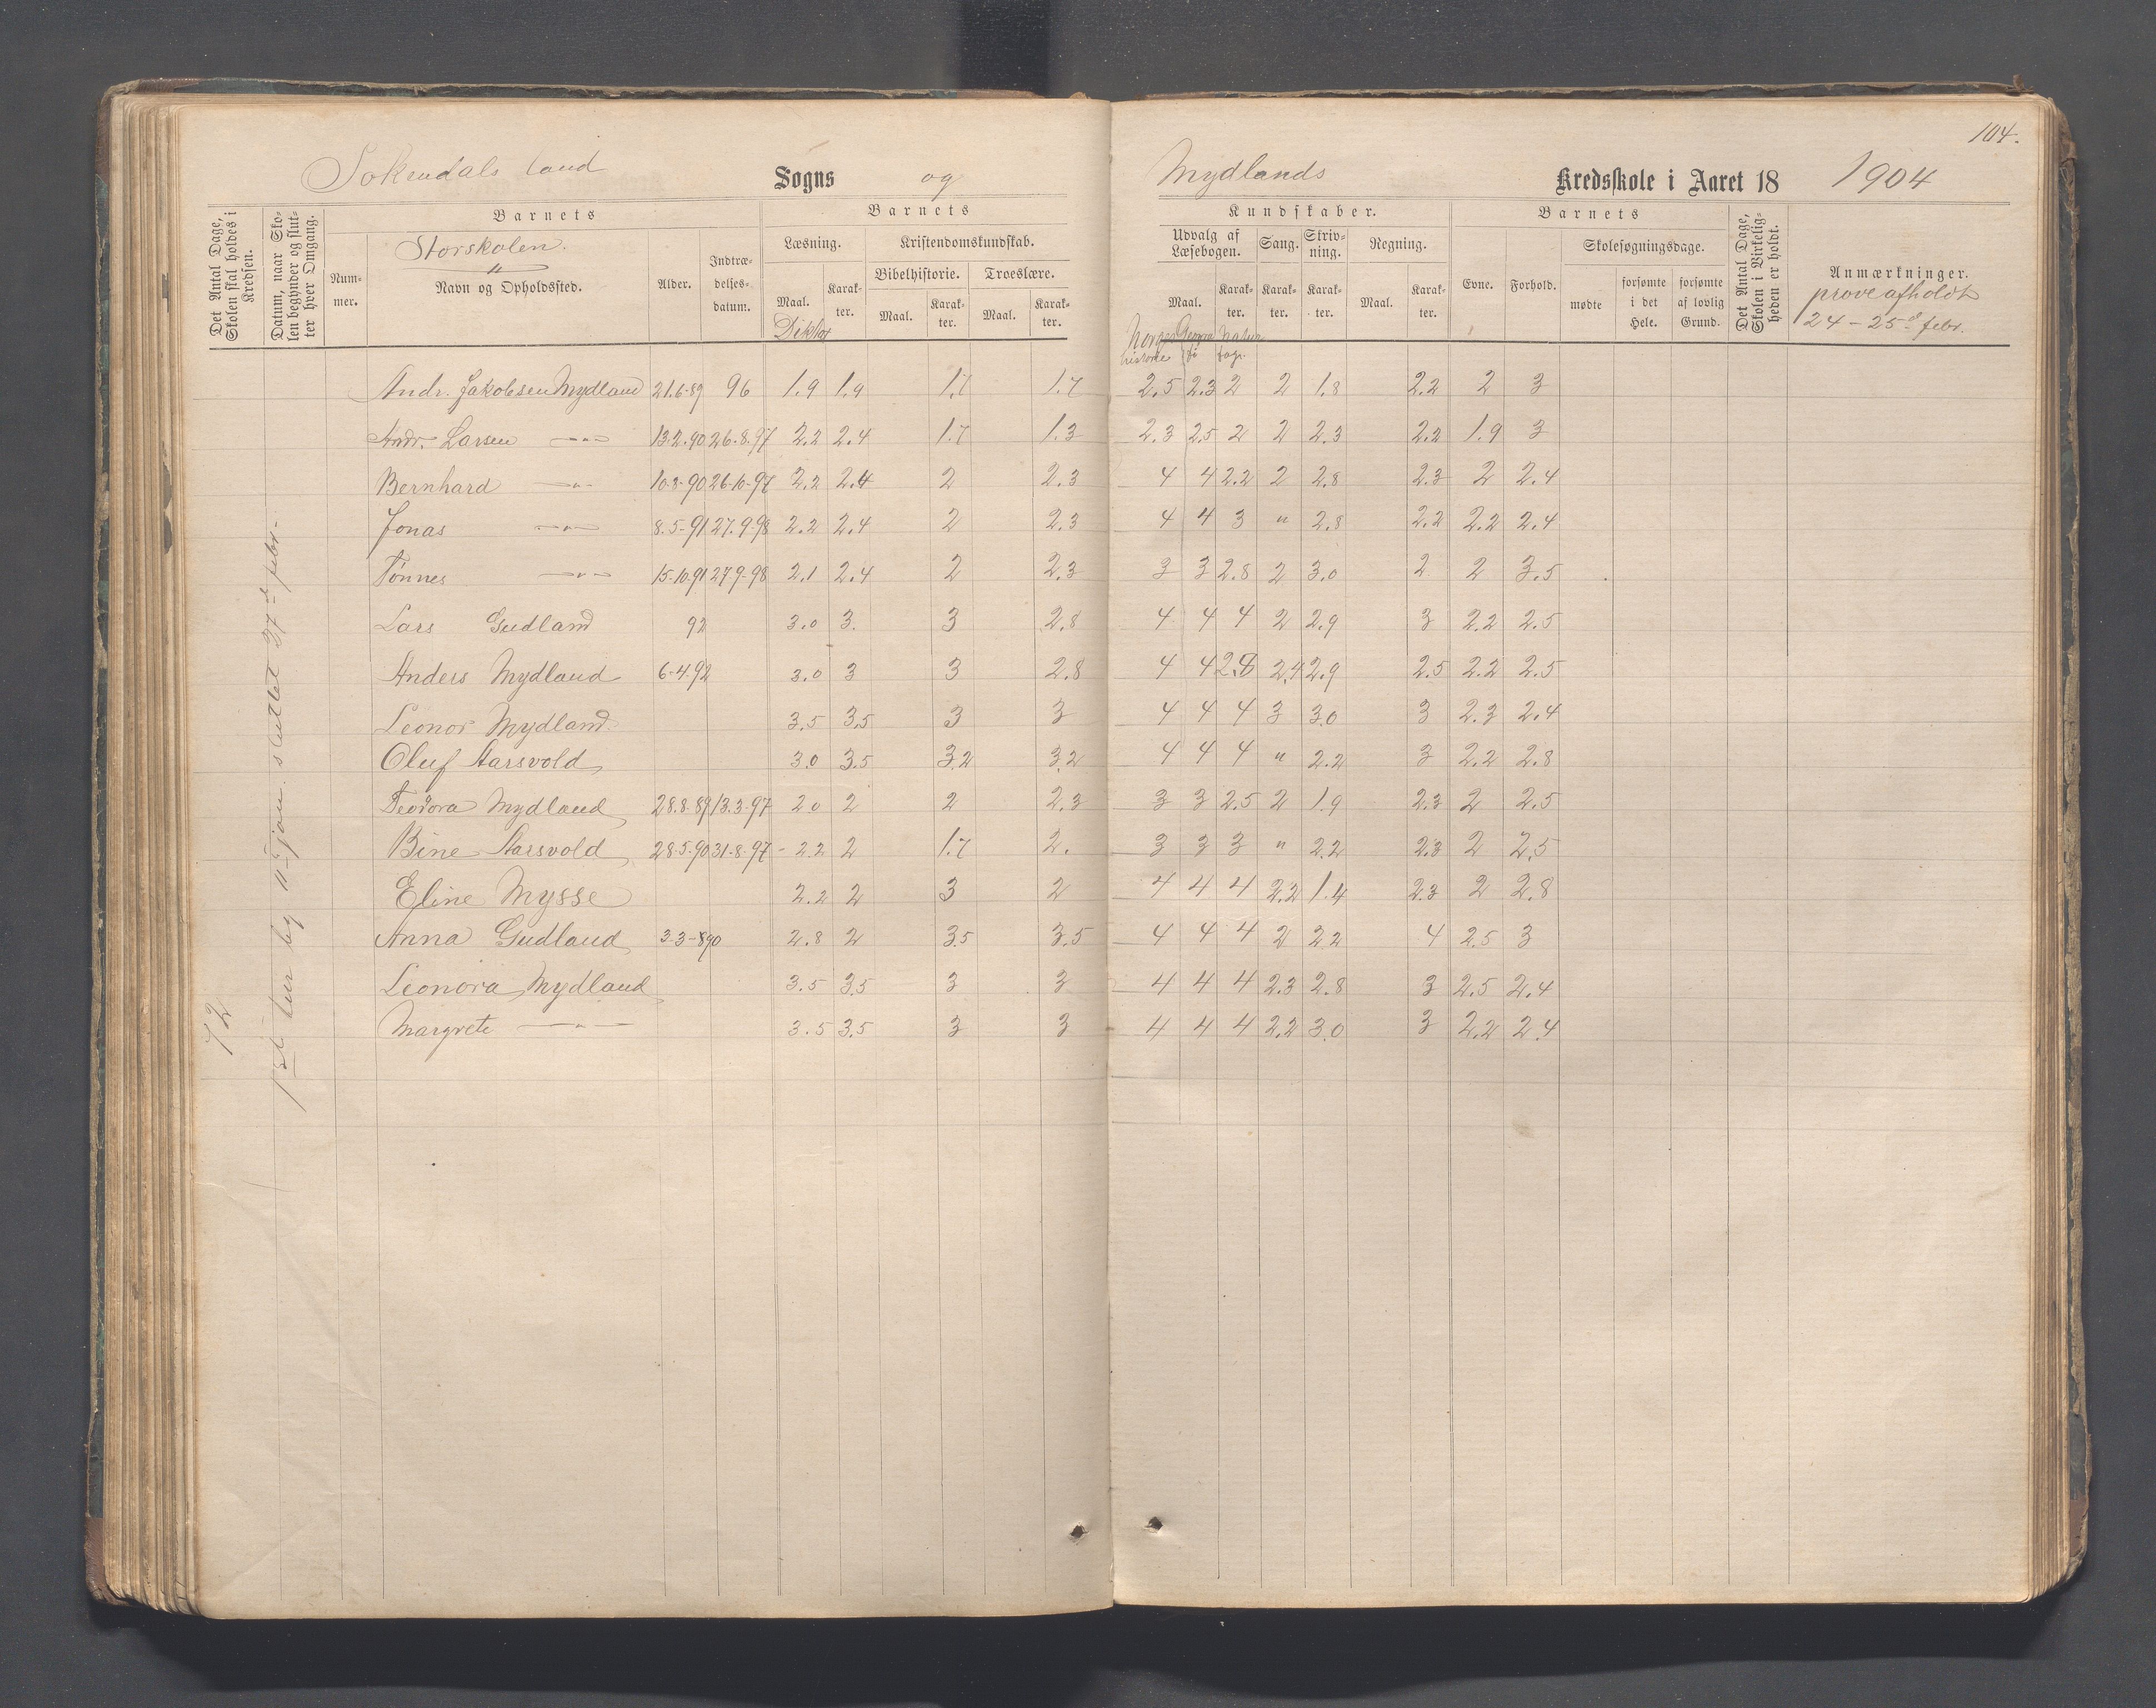 104.
Sokendals land Sogns og Mydlands Kredsskole i Aaret 18 1904
Det Antal Dage, Skolen skal holdes i Kredsen.
Datum, naar Skolen begynder og slutter hver Omgang.
Barnets
Storskolen.
Nummer.
Navn og Opholdssted.
Alder.
Indtrædelses-datum.
Barnets
Læsning.
Maal.
Diktat
Karakter.
Kristendomskundskab.
Bibelhistorie.
Maal.
Karakter.
Troeslære.
Maal.
Karakter.
Kundskaber.
Udvalg af Læsebogen.
Maal.
Karakter.
Norges historie
Geografi
Naturfag.
Sang.
Karakter.
Skrivning.
Karakter.
Regning.
Maal.
Karakter.
Barnets
Evne.
Forhold.
Skolesøgningsdage.
mødte
forsømte i det Hele.
forsømte af lovlig Grund.
Det Antal Dage, Skolen i Virkeligheden er holdt.
Anmærkninger.
prøve afholdt
24 – 25de febr.
Andr. Jakobsen Mydland 21.6-89 96 1.9 1.9 1.7 1.7 2.5 2.3 2 2 1.8 2.2 2 3
Andr. Larsen –"– 13.2.90 26.8.97 2.2 2.4 1.7 1.3 2.3 2.5 2 2 2.3 2.2 1.9 3
Bernhard –"– 10-8-90 26-10-97 2.2 2.4 2 2.3 4 4 2.2 2 2.8 2.3 2 2.4
Jonas –"– 8.5-91 27.9-98 2.2 2.4 2 2.3 4 4 3 " 2.8 2.2 2.2 2.4
Tønnes –"– 15-10.91 27.9-98 2.1 2.4 2 2.3 3 3 2.8 2 3.0 2 2 3.5
Lars Gudland 92 3.0 3. 3 2.8 4 4 4 2 2.9 3 2.2 2.5
Anders Mydland 6-4.92 3.0 3 3 2.8 4 4 2.8 2.4 2.9 2.5 2.2 2.5
Leonor Mydland 3.5 3.5 3 3 4 4 4 3 3.0 3 2.3 2.4
Oluf Aarsvold 3.0 3.5 3.2 3.2 4 4 4 " 2.2 3 2.2 2.8
Teodora Mydland 28.8-89 13.3-97 2.0 2 2 2.3 3 3 2.5 2 1.9 2.3 2 2.5
Bine Aarsvold 28.5.90 31-8-97 2.2 2 1.7 2. 3 3 3 " 2.2 2.3 2 2.5
Eline Mysse 2.2 2 3 2 4 4 4 2.2 1.4 2.3 2 2.8
Anna Gudland 3-3-890 2.8 2 3.5 3.5 4 4 4 2 2.2 4 2.5 3
Leonora Mydland 3.5 3.5 3 3 4 4 4 2.3 2.8 3 2.5 2.4
Margrete –"– 3.5 3.5 3 3 4 4 4 2.2 3.0 3 2.2 2.4
72
1ste tur beg 11te jan. sluttet 27de febr.